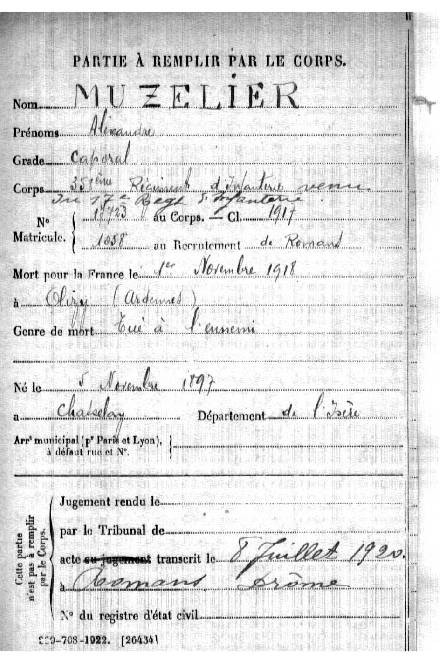 PARTIE À REMPLIR PAR LE CORPS.
Nom MUZELIER
Prénoms Alexandre
Grade Caporal
Corps 35 ième Régiment d'Infanterie venu
Du 17e Regt d'Infanterie
N° 18723 au Corps. — Cl. 1917
Matricule. 1038 au Recrutement de Romans
Mort pour la France le 1er Novembre 1918
à Olizy (Ardennes)
Genre de mort Tué à l'ennemi
Né le 5 Novembre 1897
a Chatelay Département de l'Isère
Arrt municipal (pr Paris et Lyon),
à défaut rue et N°.
Cette partie
n'est pas à remplir
par le Corps.
Jugement rendu le
par le Tribunal de
acte ou jugement transcrit le 8 Juillet 1920.
à Romans Drôme
N° du registre d'état civil
-708-1922. [26434]